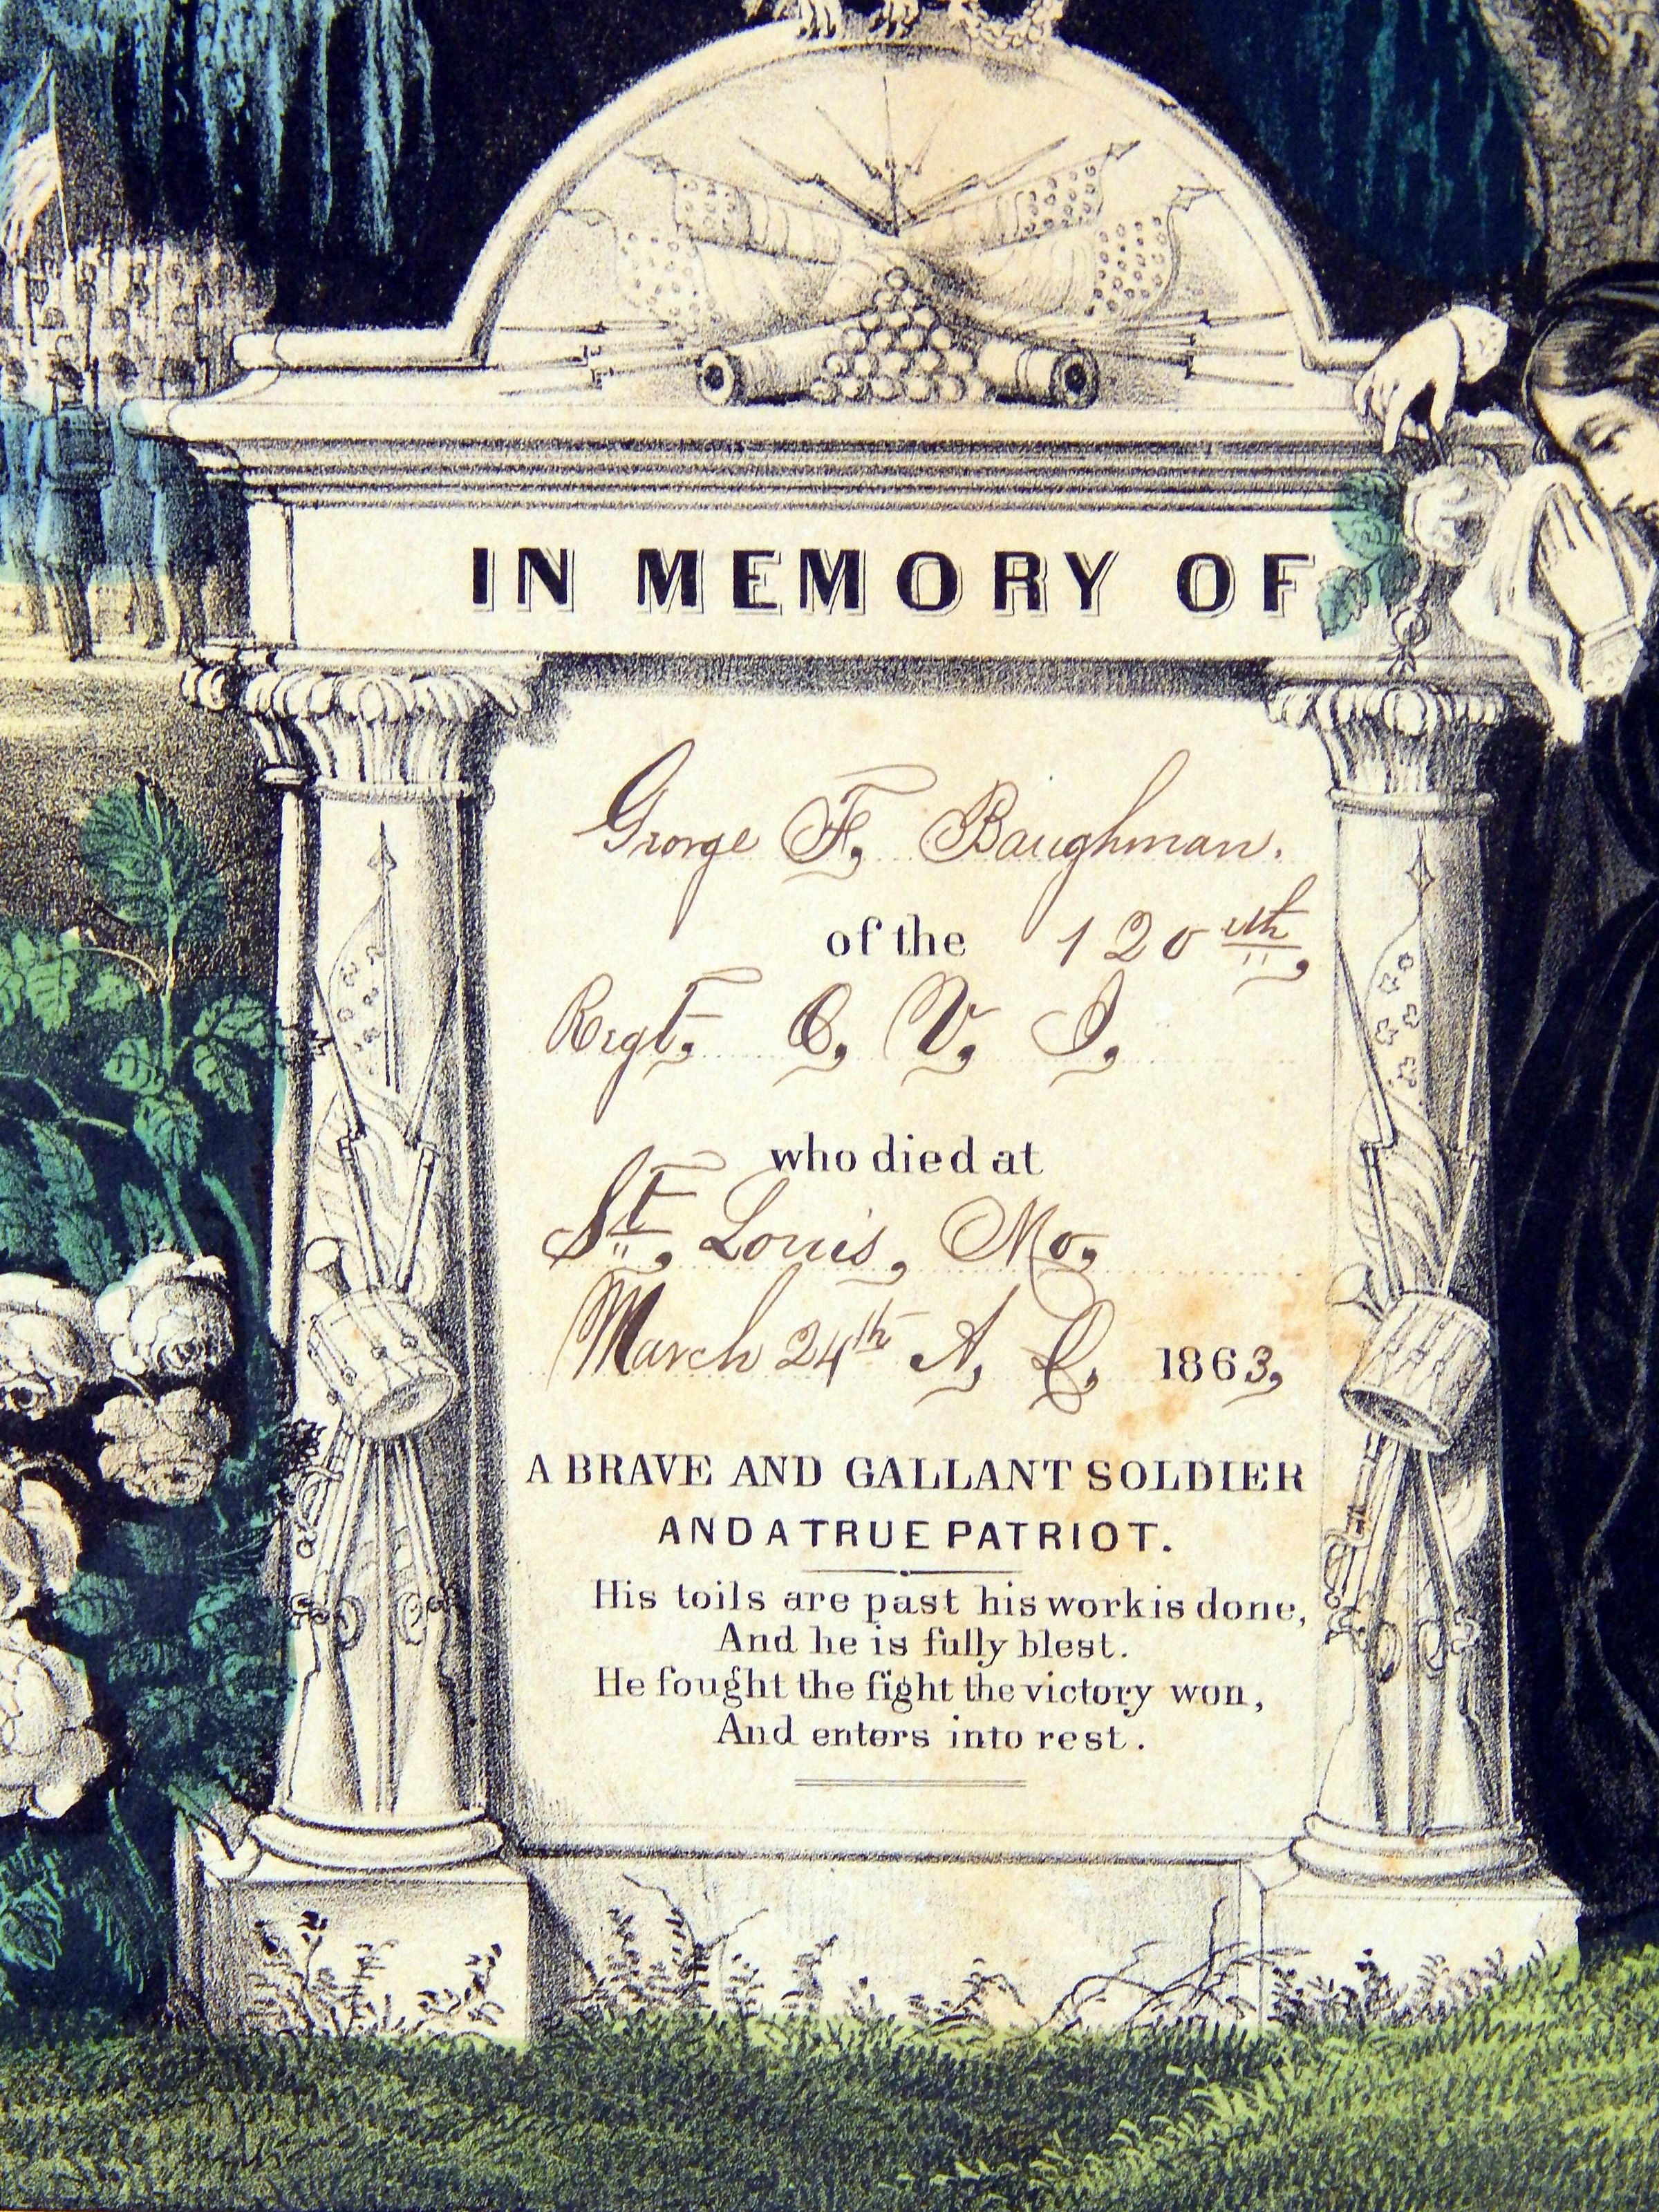 IN MEMORY OF
George F. Baughman.
of the 120th,
Regt. O. V. I.
who died at
St. Louis, Mo.
March 24th A. D. 1863,
A BRAVE AND GALLANT SOLDIER
AND A TRUE PATRIOT.
His toils are past his work is done,
And he is fully blest.
He fought the fight the victory won,
And enters into rest.